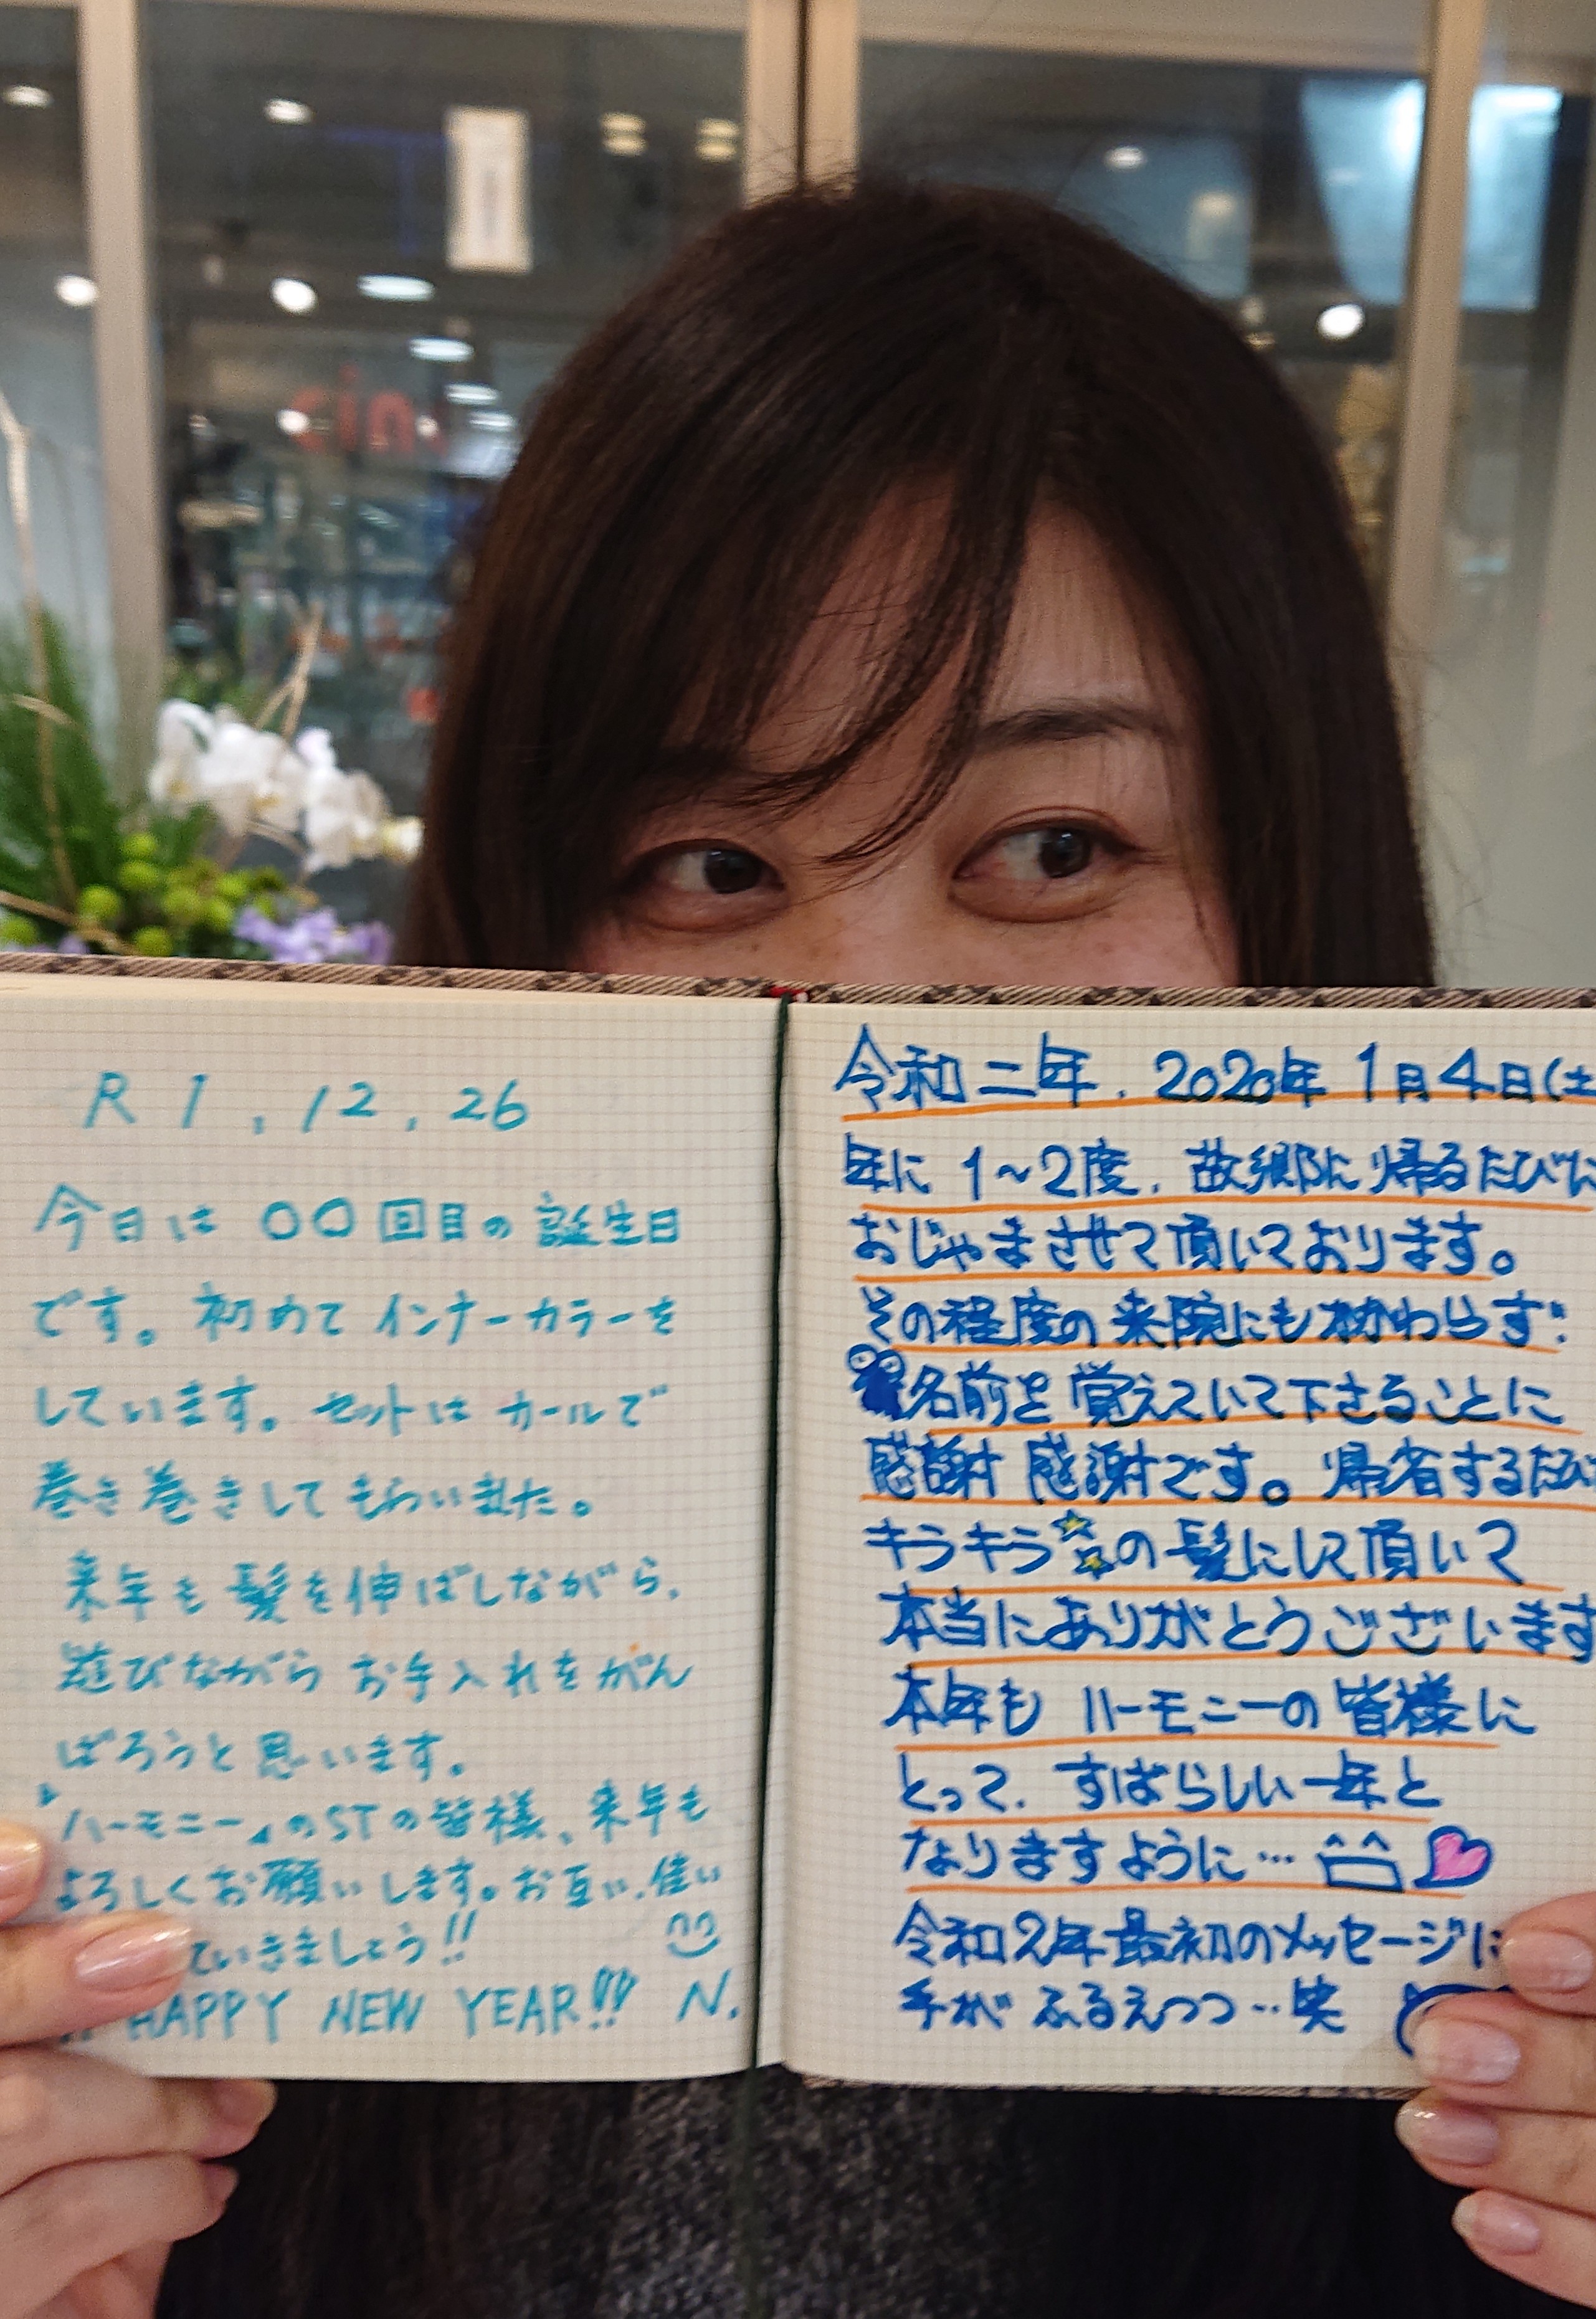 R1.12.26
今日は〇〇回目の誕生日
です。初めてインナーカラーを
しています。セットはカールで
巻き巻きしてもらいました。
来年も髪を伸ばしながら、
遊びながらお手入れをがん
ばろうと思います。
「ハーモニー」のSTの皆様、来年も
よろしくお願いします。お互い、佳い
ていきましょう!!
HAPPY NEW YEAR!! N.
令和二年.2020年1月4日(土
年に1~2度、故郷に帰るたびに
おじゃまさせて頂いております。
その程度の来院にもかかわらず
名前を覚えていて下さることに
感謝感謝です。帰省するたび
キラキラの髪にして頂いて
本当にありがとうございます
本年もハーモニーの皆様に
とって、すばらしい一年と
なりますように…
令和2年最初のメッセージに
手がふるえつつ…笑